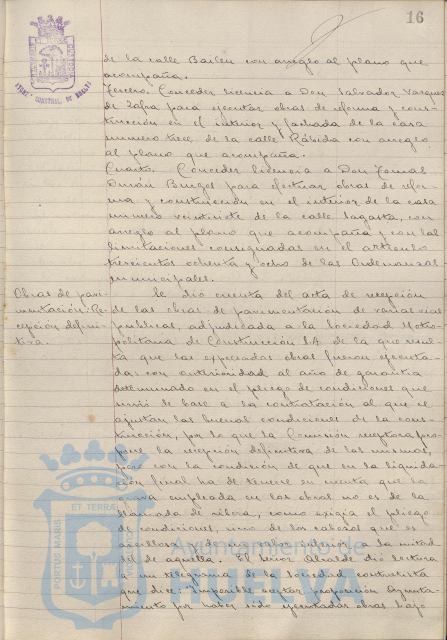 16
de la calle Bailen con arreglo al plano que
acompaña.
Tercero. Conceder licencia a Don Salvador Vazquez
de Zafra para ejecutar obras de reforma y cons-
trucción en el interior y fachada de la casa
numero trece de la calle Rábida con arreglo
al plano que acompaña.
Cuarto. Conceder licencia a Don Tomas
Durán Burgos para efectuar obras de refor-
ma y construcción en el interior de la casa
numero veintisiete de la calle Sagasta, con
arreglo al plano que acompaña y con las
limitaciones consignadas en el artículo
trescientos ochenta y ocho de las Ordenanzas
municipales.
Obras de pavi-
mentación: Re-
cepción defini-
tiva.
Se dio cuenta del acta de recepción
de las obras de pavimentación de varias vias
publicas, adjudicada a la Sociedad Metro-
politana de Construcción S.A. de la que resul-
ta que las expresadas obras fueron ejecuta-
das con anterioridad al año de garantia
determinado en el pliego de condiciones que
sirvió de base a la contratación al que se
ajustan las buenas condiciones de la cons-
trucción, por lo que la Comisión receptora pro-
pone la recepción definitiva de las mismas,
pero con la condición de que en la liquida-
ción final ha de tenerse en cuenta que la
grava empleada en las obras no es de la
llamada de ribera, como exigia el pliego
de condiciones, sino de los cabezos que es
de un valor inferior a la mitad
del de aquella. El señor Alcalde dió lectura
a un telegrama de la Sociedad contratista
que dice: "Imposible aceptar proposición Ayunta-
miento por haber sido ejecutadas obras bajo
PORTUS MARIS ET TERRAE
Ayuntamiento de
HUELVA